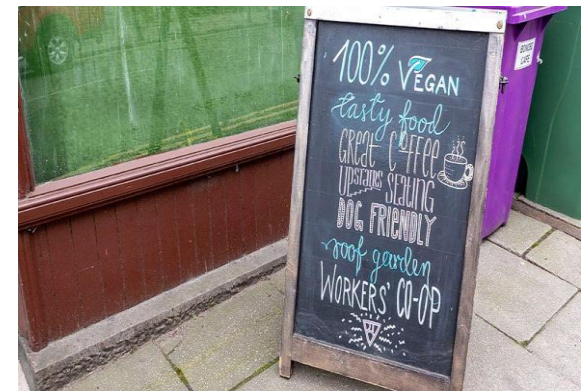 100% VEGAN
tasty food
GREAT COFFEE
UPSTAIRS SEATING
DOG FRIENDLY
roof garden
WORKERS' CO-OP
BONOBO
CAFE